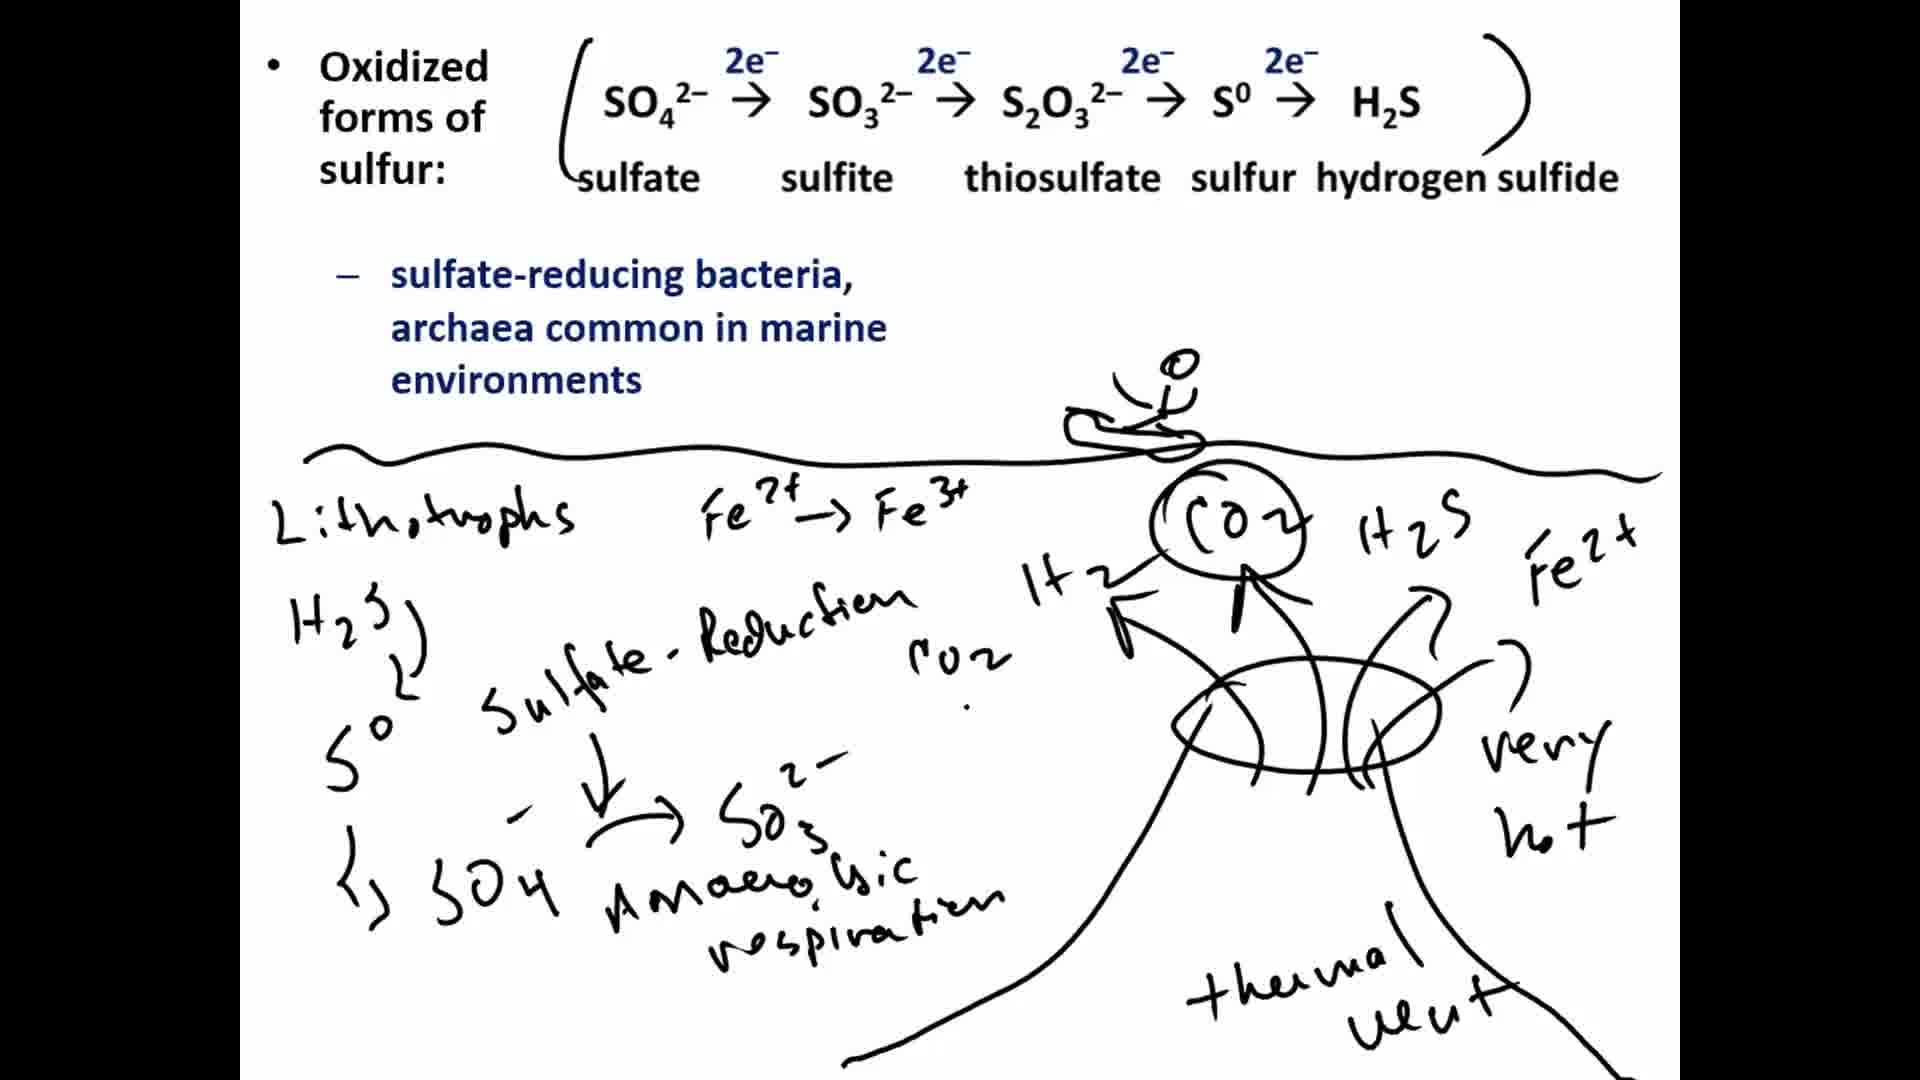 • Oxidized forms of sulfur:
2e⁻ 2e⁻ 2e⁻ 2e⁻
SO₄²⁻ → SO₃²⁻ → S₂O₃²⁻ → S⁰ → H₂S
sulfate sulfite thiosulfate sulfur hydrogen sulfide
– sulfate-reducing bacteria,
archaea common in marine
environments
Lithotrophs
Fe²⁺ → Fe³⁺
H₂
CO₂
H₂S
Fe²⁺
H₂S
Sulfate-Reduction
CO₂
S⁰
SO₄⁻ → SO₃²⁻
Anaerobic
respiration
very
hot
thermal
vent